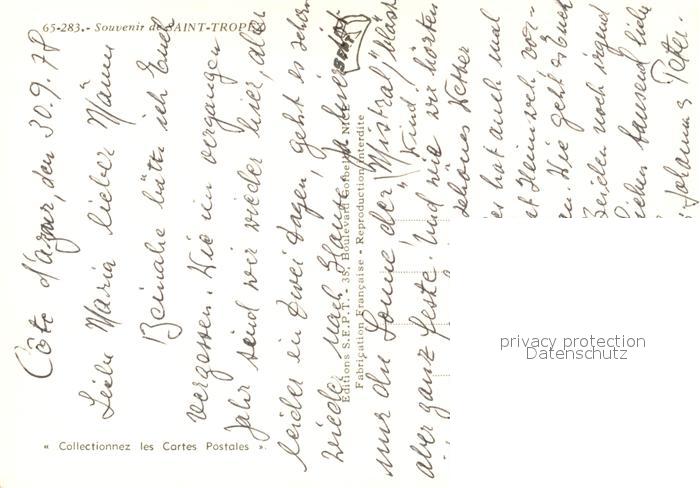 65-283. - Souvenir de SAINT-TROPEZ
Côte d'azur, den 30.9.78
Liebe Maria lieber Mann
Beinahe hätte ich Euch
vergessen. Wie im vergangen
Jahr sind wir wieder hier, aber
leider in zwei Tagen, geht es schon
wieder nach Hause. Ja hier
nur die Sonne der "Mistral" (Wind) bläst
aber ganz feste. Und wie wir hörten
schönes Wetter
es hat auch mal
Heinrich vor-
Wie geht es Euch
Beiden noch irgend
tausend liebe
Johanna & Peter.
Editions S.E.P.T. - 35, Boulevard Gorbella - NICE
Fabrication Française - Reproduction Interdite
« Collectionnez les Cartes Postales ».
privacy protection
Datenschutz